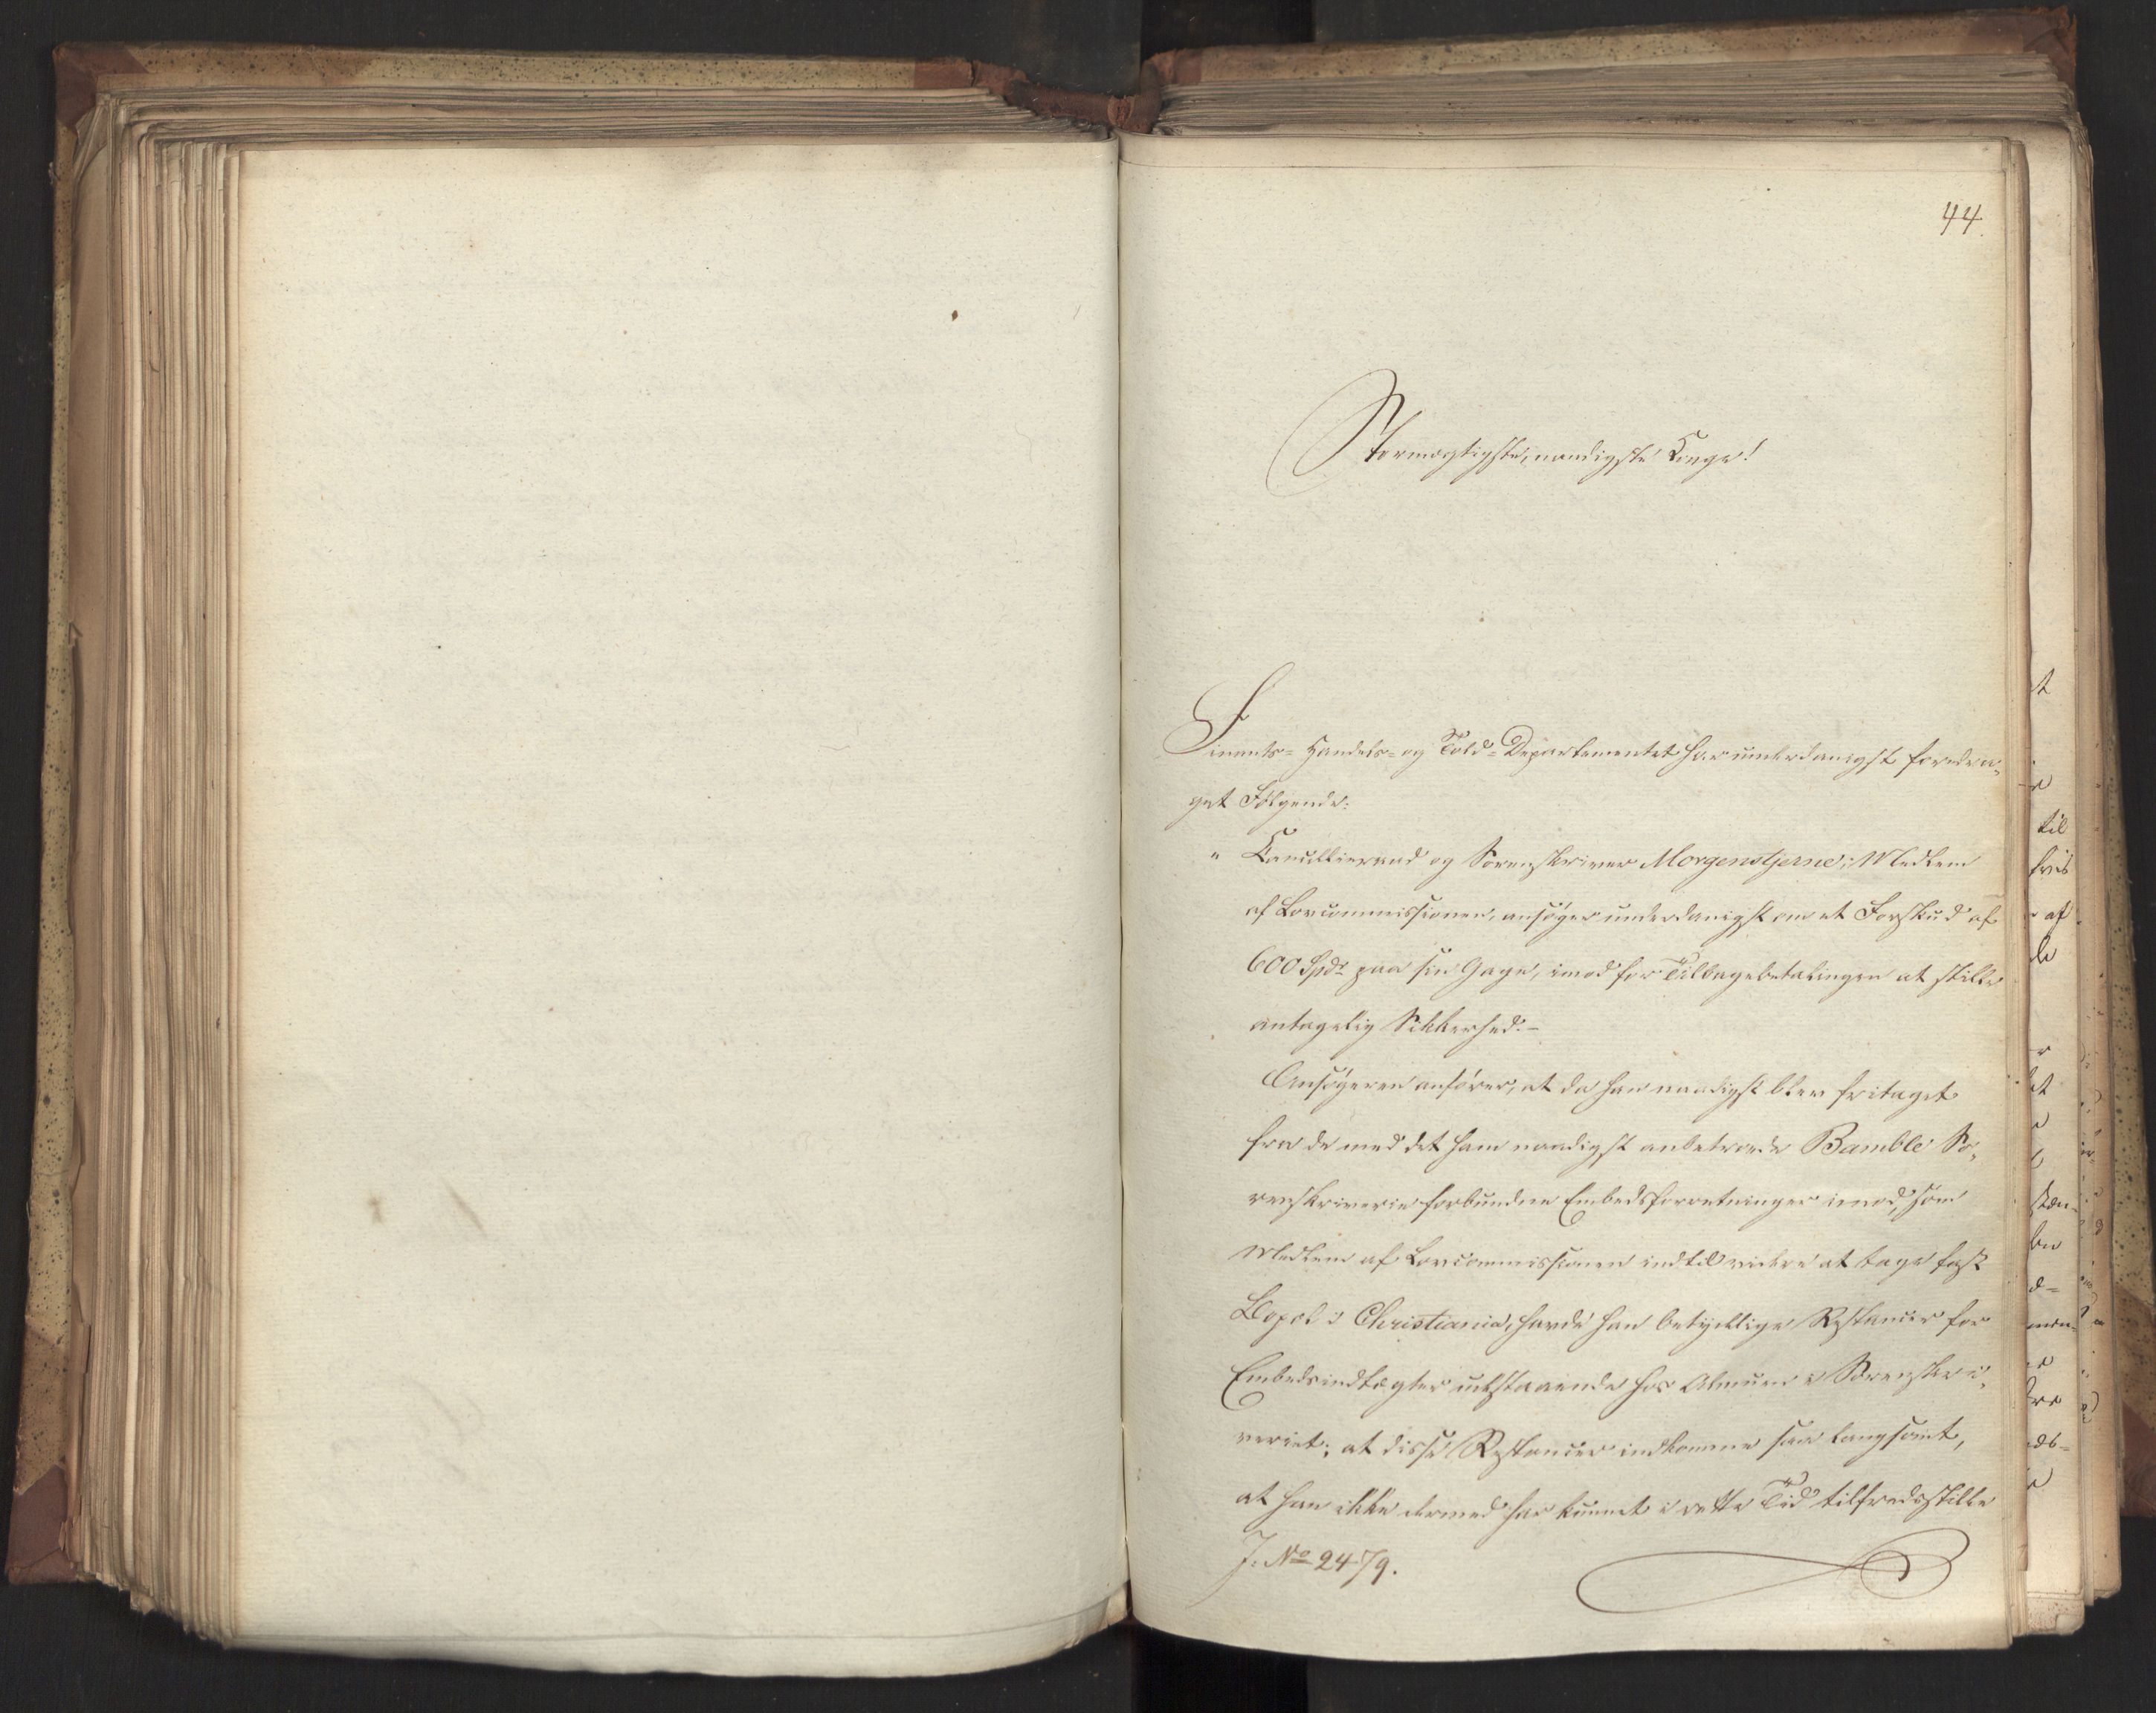 44.
Stormægtigste, naadigste Konge!
Finants- Handels- og Told-Departementet har underdanigst foredra-
get Følgende:
" Cancellieraad og Sorenskriver Morgenstjerne, Medlem
af Lovcommissionen, ansøger underdanigst om et Forskud af
600 Spdr paa sin Gage, imod for Tilbagebetalingen at stille
antagelig Sikkerhed.-
Ansøgeren anfører, at da han naadigst blev fritaget
fra de med det ham naadigst anbetroede Bamble So-
renskriverie forbundne Embedsforretninger imod, som
Medlem af Lovcommissionen indtil videre at tage fast
Bopæl i Christiania, havde han betydelige Restancer for
Embedsindtægter udestaaende hos Almuen i Sorenskri-
veriet; at disse Restancer indkomme saa langsomt,
at han ikke dermed har kunnet i rette Tid tilfredsstille
J: No 2479.